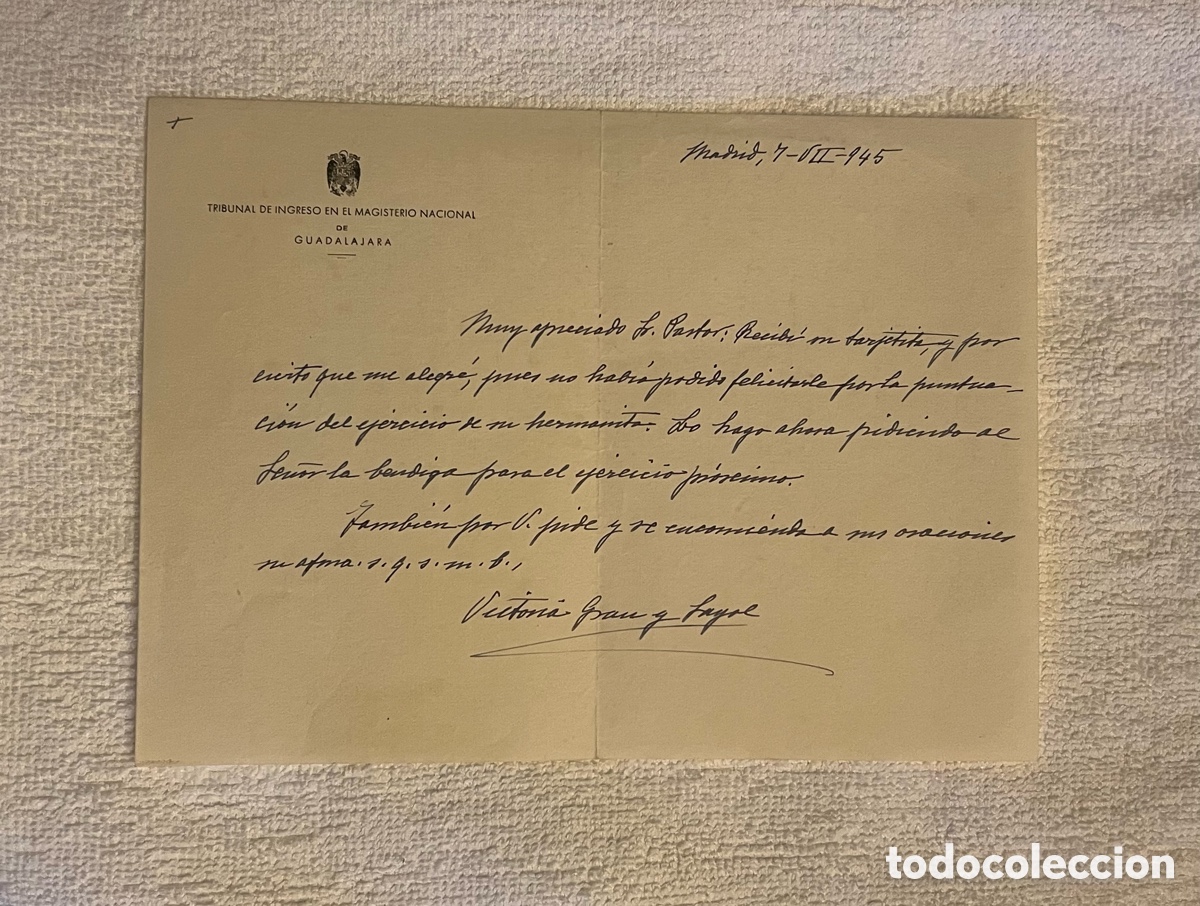 +
Madrid, 7-VII-945
TRIBUNAL DE INGRESO EN EL MAGISTERIO NACIONAL
DE
GUADALAJARA
Muy apreciado Sr. Pastor: Recibí su tarjetita, y por
cierto que me alegré, pues no había podido felicitarle por la puntua-
ción del ejercicio de su hermanita. Lo hago ahora pidiendo al
Señor la bendiga para el ejercicio próximo.
También por V. pide y se encomienda a sus oraciones
su afma. s. q. s. m. b.,
Victoria Grau y Sayol
todocoleccion